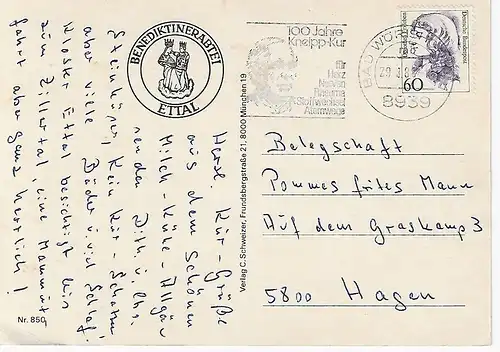 BENEDIKTINERABTEI
ETTAL
100 Jahre
Kneipp-Kur
für
Herz
Nerven
Rheuma
Stoffwechsel
Atemwege
BAD WÖRI
8939
Deutsche Bundespost
60
Herzl. Kur-Grüße
aus dem Schönen
Milch-Kühe-Allgäu
senden
Steinkäser, Kein Kur-Schatten,
aber viele Bäder u. viel Schlaf.
Kloster Ettal besichtigt bis
zum Zillertal, eine Mammut-
fahrt aber ganz herrlich!
Verlag C. Schweizer, Frundsbergstraße 21, 8000 München 19
Belegschaft
Pommes frites Mann
Auf dem Graskamp 3
5800 Hagen
Nr. 850